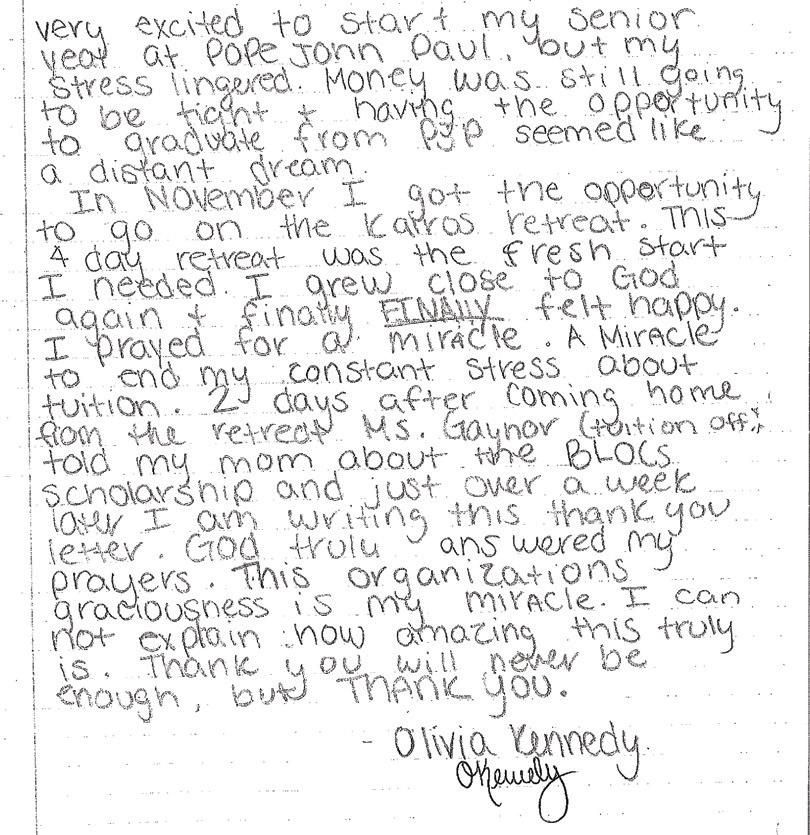 very excited to start my senior
year at POPE JOHN Paul, but my
stress lingered. Money was still going
to be tight + having the opportunity
to graduate from PJP seemed like
a distant dream.
In November I got the opportunity
to go on the Kairos retreat. This
4 day retreat was the fresh start
I needed. I grew close to God
again + finally FINALLY felt happy.
I prayed for a miracle. A Miracle
to end my constant stress about
tuition. 2 days after coming home
from the retreat Ms. Gaynor (tuition off.)
told my mom about the BLOCS
scholarship and just over a week
later I am writing this thank you
letter. God truly answered my
prayers. This organizations
graciousness is my miracle. I can
not explain how amazing this truly
is. Thank you will never be
enough, but THANK YOU.
- Olivia Kennedy
OKennedy